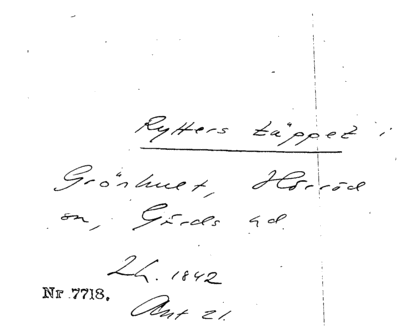 Ryttars täppet i
Grönhult, Hörröd
sn, Gärds hd.
Lh. 1842
Nr 7718.
Ant 21.